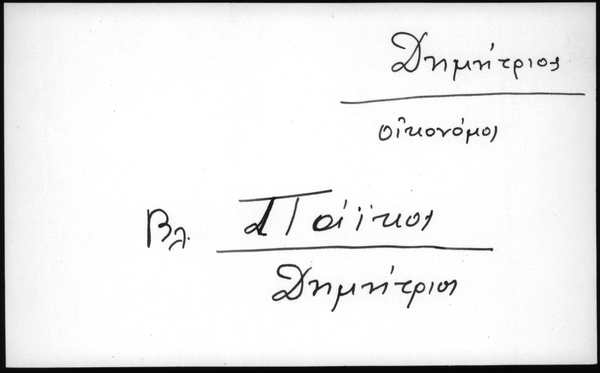 Δημήτριος
οἰκονόμος
Βλ. Πάϊκος
Δημήτριος